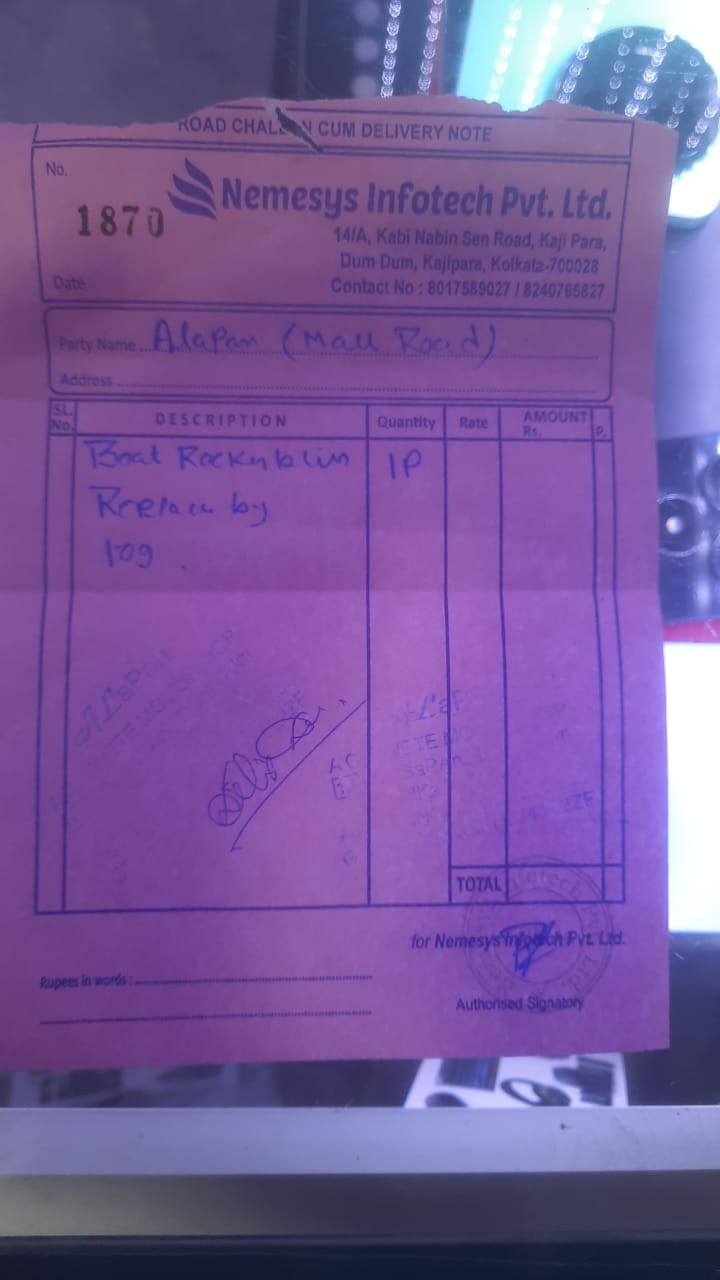 ROAD CHALLAN CUM DELIVERY NOTE
No.
1870
Nemesys Infotech Pvt. Ltd.
14/A, Kabi Nabin Sen Road, Kaji Para,
Dum Dum, Kajipara, Kolkata-700028
Date
Contact No : 8017589027 / 8240765827
Party Name Alapan (Mall Road)
Address
SL. No. DESCRIPTION Quantity Rate AMOUNT Rs. P.
Boat 1P
by
109
TOTAL
for Nemesys Infotech Pvt. Ltd.
Rupees in words :
Authorised Signatory